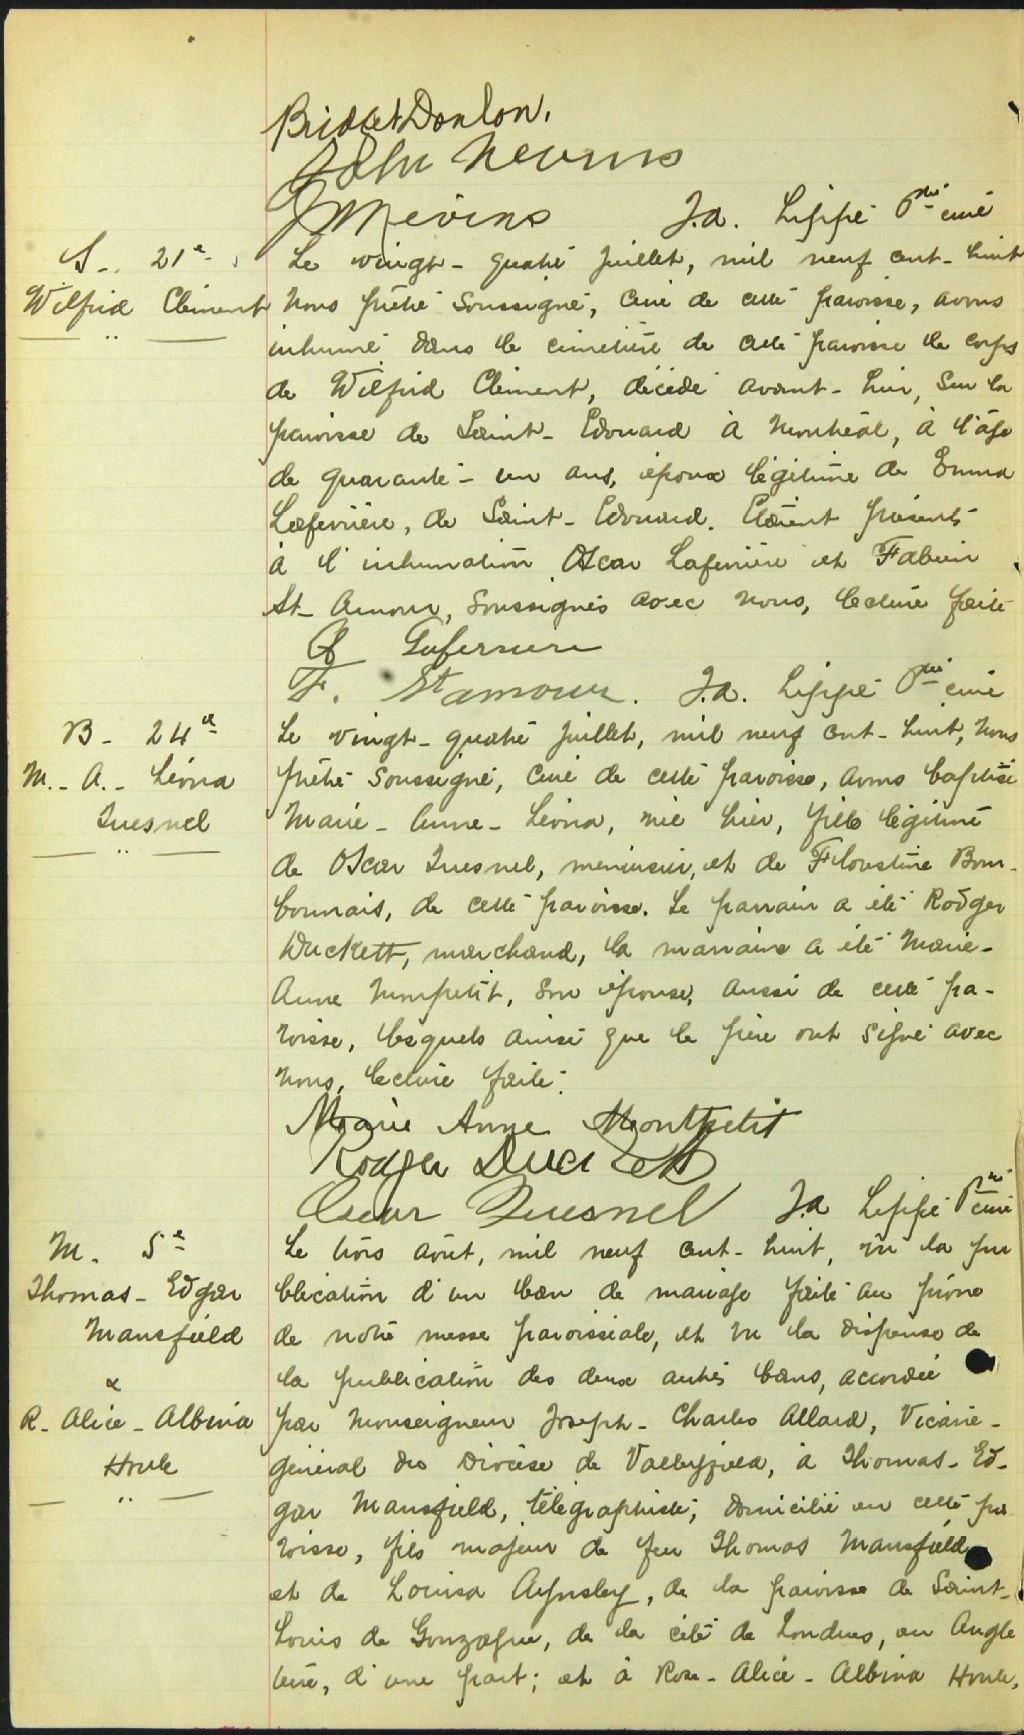 Bridget Donlon.
John Nevins
J Nevins J.A. Lippé Ptre curé
S. 21e
Wilfrid Clément
Le vingt-quatre juillet, mil neuf cent-huit
Nous prêtre soussigné, curé de cette paroisse, avons
inhumé dans le cimetière de cette paroisse le corps
de Wilfrid Clément, décédé avant-hier, sur la
paroisse de Saint-Edouard à Montréal, à l'âge
de quarante-un ans, époux légitime de Emma
Laferrière, de Saint-Edouard. Etaient présents
à l'inhumation Oscar Laferrière et Fabien
St-Amour, soussignés avec nous, lecture faite
O Laferriere
F. St amour. J.A. Lippé Ptre curé
B- 24e
M.-A.-Léona
Quesnel
Le vingt-quatre juillet, mil neuf cent-huit, nous
prêtre soussigné, curé de cette paroisse, avons baptisé
Marie-Anne-Léona, née hier, fille légitime
de Oscar Quesnel, menuisier, et de Floristine Bour-
bonnais, de cette paroisse. Le parrain a été Rodger
Duckett, marchand, la marraine a été Marie-
Anne Montpetit, son épouse, aussi de cette pa-
roisse, lesquels ainsi que le père ont signé avec
nous, lecture faite.
Marie Anne Montpetit
Rodger Duckett
Oscar Quesnel J.A Lippé Ptre curé
M. 5e
Thomas-Edgar
Mansfield
&
R-Alice-Albina
Houle
Le trois août, mil neuf cent-huit, vu la pu
blication d'un ban de mariage faite au prône
de notre messe paroissiale, et vu la dispense de
la publication des deux autres bans, accordée
par Monseigneur Joseph-Charles Allard, Vicaire-
général du Diocèse de Valleyfield, à Thomas-Ed-
gar Mansfield, télégraphiste, domicilié en cette pa
roisse, fils majeur de feu Thomas Mansfield
et de Louisa Aynsley, de la paroisse de Saint-
Louis de Gonzague, de la cité de Londres, en Angle
terre, d'une part; et à Rose-Alice-Albina Houle,